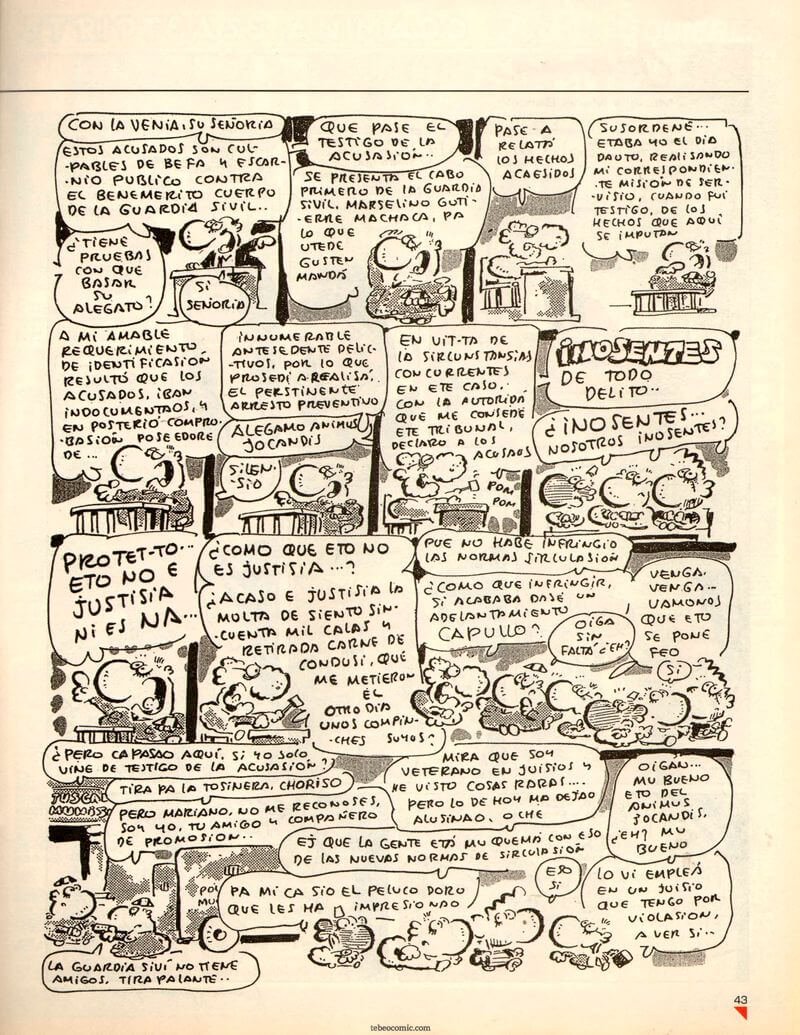 CON LA VENIA, SU SEÑORIA
ESTOS ACUSADOS SON CUL-
-PABLES DE BEFA Y ESCAR-
-NIO PUBLICO CONTRA
EL BENEMERITO CUERPO
DE LA GUARDIA SIVIL..
¿TIENE
PRUEBAS
CON QUE
BASAR
SU
ALEGATO?
SI
SEÑORIA
QUE PASE EL
TESTIGO DE LA
ACUSASION..
SE PRESENTA EL CABO
PRIMERO DE LA GUARDIA
SIVIL, MARSELINO GUTI-
-ERRE MACHACA, PA
LO QUE
UTEDE
GUSTEN
MANDÁ
PASE A
RELATÁ
LOS HECHOS
ACAESIDOS
SUSORDENE...
ETABA YO EL DIA
DAUTO, REALISANDO
MI CORRESPONDIEN-
-TE MISION DE SER-
-VISIO, CUANDO FUI
TESTIGO, DE LOS
HECHOS QUE AQUI
SE IMPUTAN
A MI AMABLE
REQUERIMIENTO
DE IDENTIFICASION
RESULTÓ QUE LOS
ACUSADOS, IBAN
INDOCUMENTAOS, Y
EN POSTERIO COMPRO-
-BASION POSEEDORE
DE ...
INNUMERABLE
ANTESEDENTE DELIC-
-TIVOS, POR LO QUE
PROSEDI A REALISA,
EL PERSTINENTE
ARRESTO PREVENTIVO
ALEGAMO ANIMUS
JOCANDIS
SILEN-
-SIO
EN VIT-TA DE
LA SIRCUNSTANSIAS
CONCURRENTES
EN ETE CASO,
CON LA AUTORIDA
QUE ME CONSEDE
ETE TRIBUNAL,
DECLARO A LOS
ACUSAOS
POM
POM
INOSENTES
DE TODO
DELITO..
¿INOSENTES...
NOSOTROS INOSENTES?
PROTET-TO...
ETO NO E
JUSTISIA
NI ES NA...
¿COMO QUE ETO NO
ES JUSTISIA...?
¿ACASO E JUSTISIA LA
MULTA DE SIENTO SIN-
-CUENTA MIL CALAS Y
RETIRADA CARNE DE
CONDUSI, QUE
ME METIERON
EL
OTRO DIA
UNOS COMPIN-
-CHES SUYOS?
PUE NO HABE INFRINGIO
LAS NORMAS SIRCULASION
¿COMO QUE INFRINGIR,
SI ACABABA DASE UN
ADELANTAMIENTO
CAPULLO?
OIGA
SIN
FALTÁ ¿EH?
VENGA,
VENGA...
VAMONOS
QUE ETO
SE PONE
FEO
SI
¿PERO CAPASAO AQUI, SI YO SOLO
VINE DE TESTIGO DE LA ACUSASION?
TIRA PA LA TOSINERA, CHORISO
PERO MARIANO, NO ME RECONOSES,
SOY YO, TU AMIGO Y COMPAÑERO
DE PROMOSION..
LA GUARDIA SIVI NO TIENE
AMIGOS, TIRA PALANTE..
MIRA QUE SOY
VETERANO EN JUISIOS Y
HE VISTO COSAS RARAS....
PERO LO DE HOY MA DEJAO
ALUSINAO, O CHE
EJ QUE LA GENTE ETÁ MU QUEMÁ CON ESO
DE LAS NUEVAS NORMAS DE SIRCULASION
PA MI CA SIO EL PELUCO DORO
QUE LES HA IMPRESIONADO
ESO
SI
OIGAN...
MU BUENO
ETO DEL
ANIMUS
JOCANDIS,
¿EH? MU
BUENO
LO VI EMPLEÁ
EN UN JUISIO
QUE TENGO POR
VIOLASION,
A VER SI..
43
tebeocomic.com